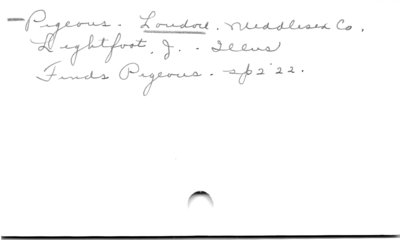 - Pigeons. London. Middlesex Co.
Lightfoot, J. - Illus
Finds Pigeons. sp2'22.